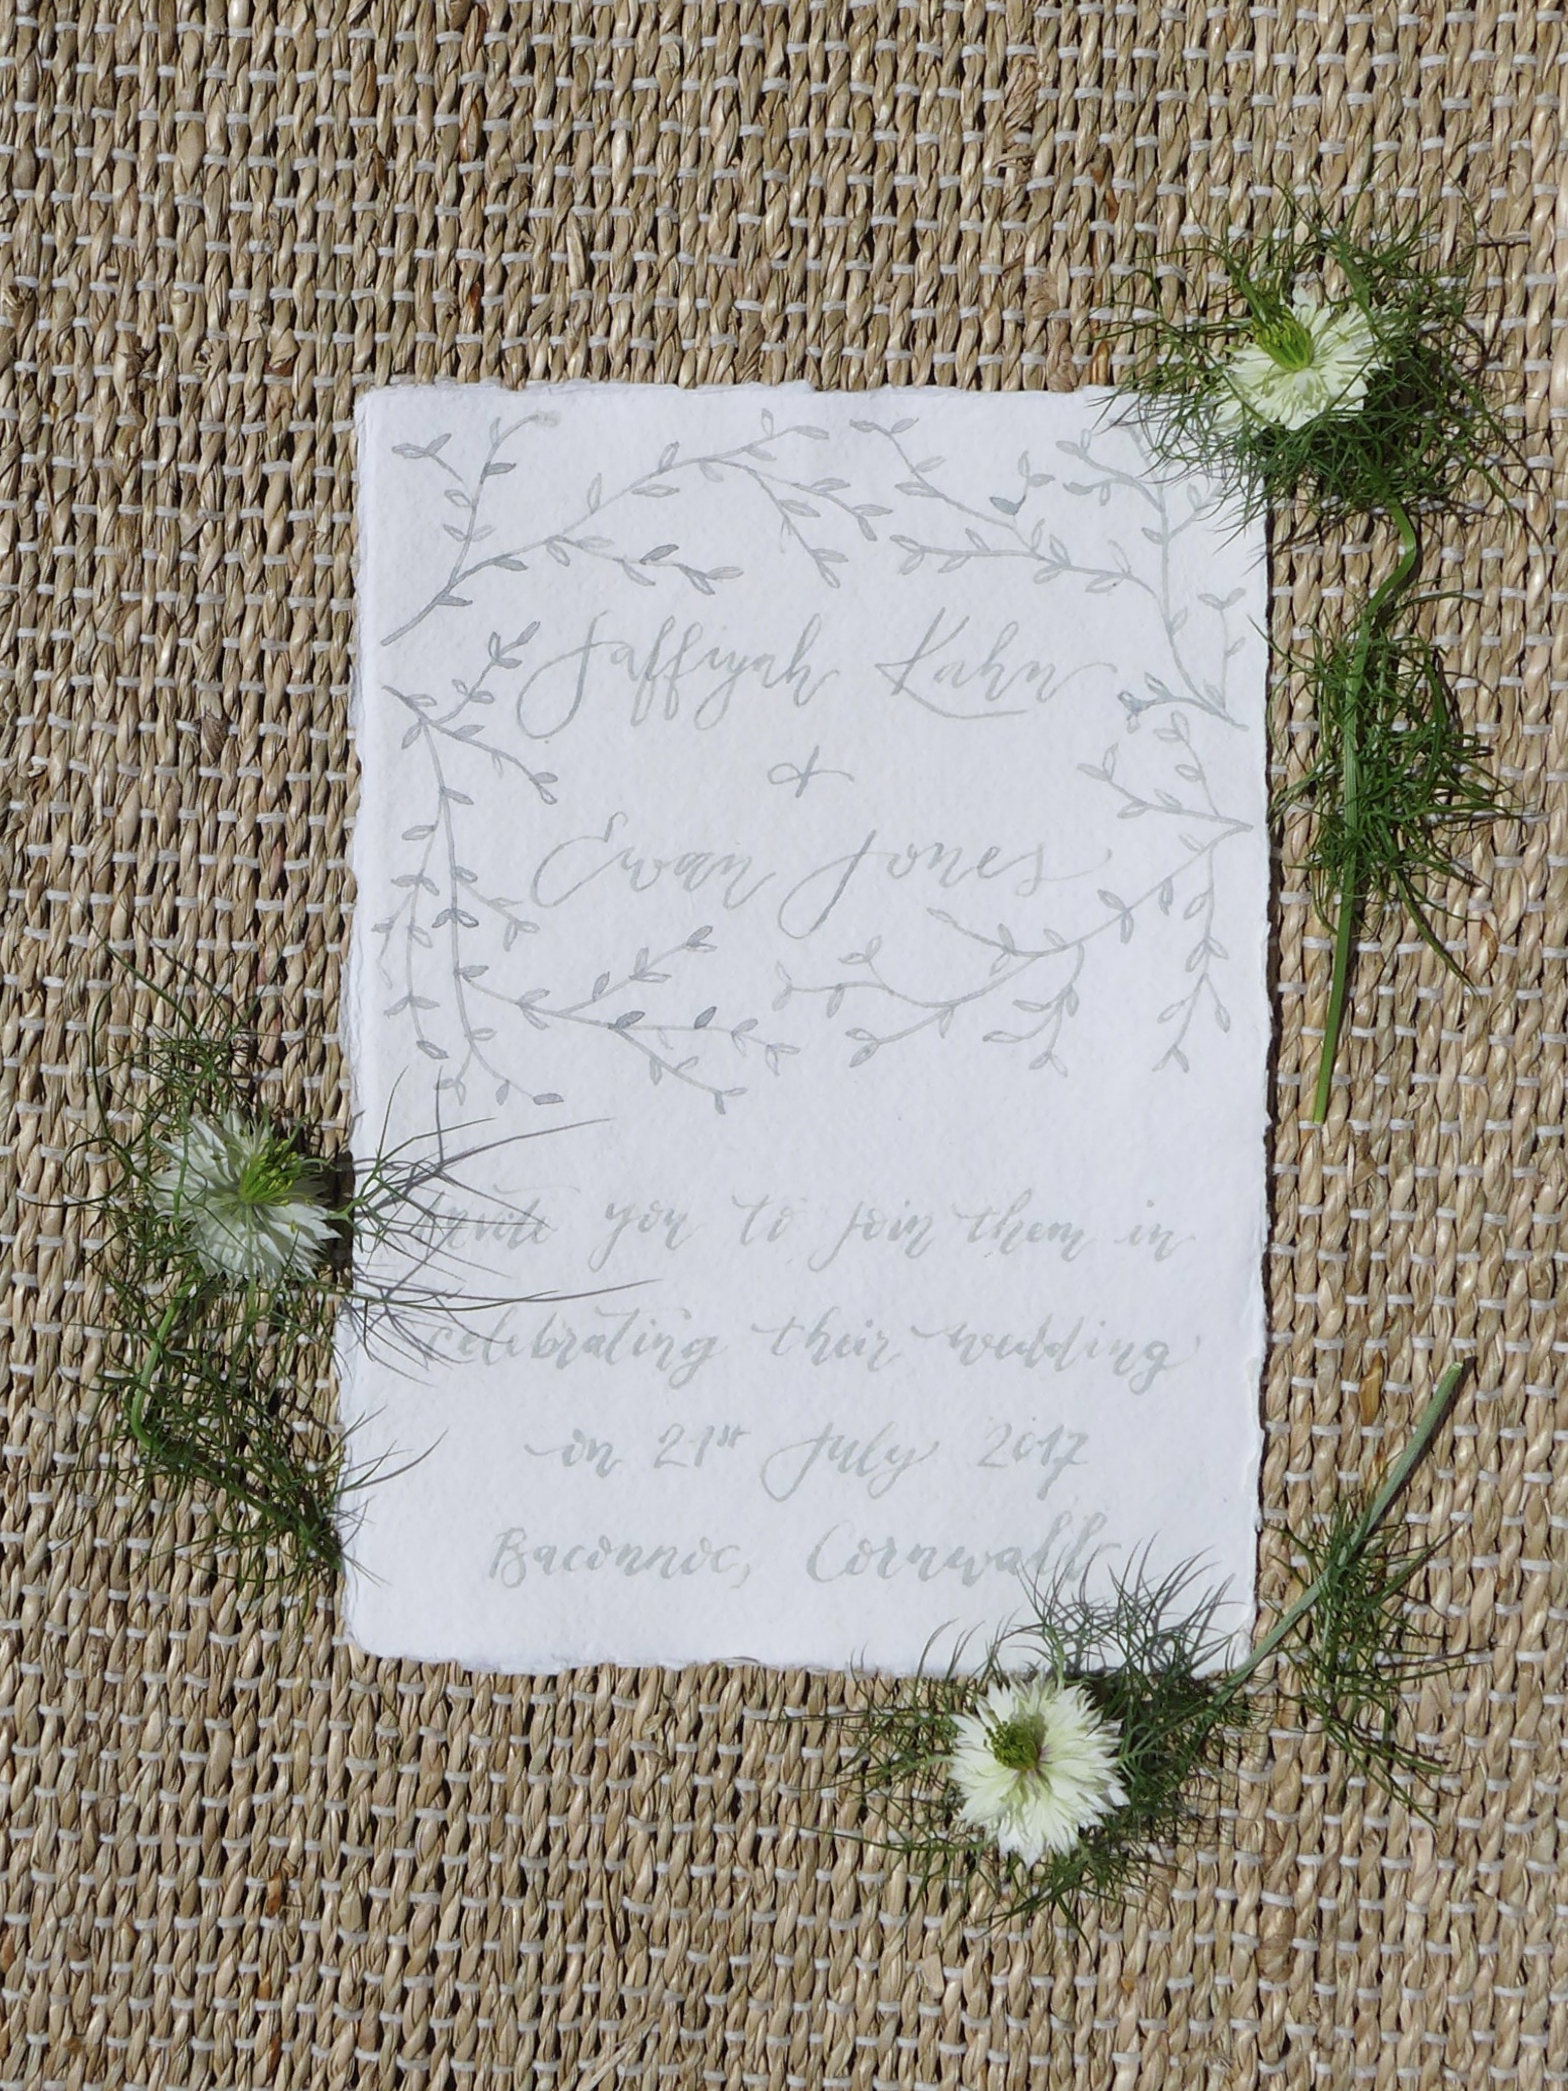 Jaffiyah Kahn
+
Ewan Jones
invite you to join them in
celebrating their wedding
on 21st July 2017
Baconnoc, Cornwall